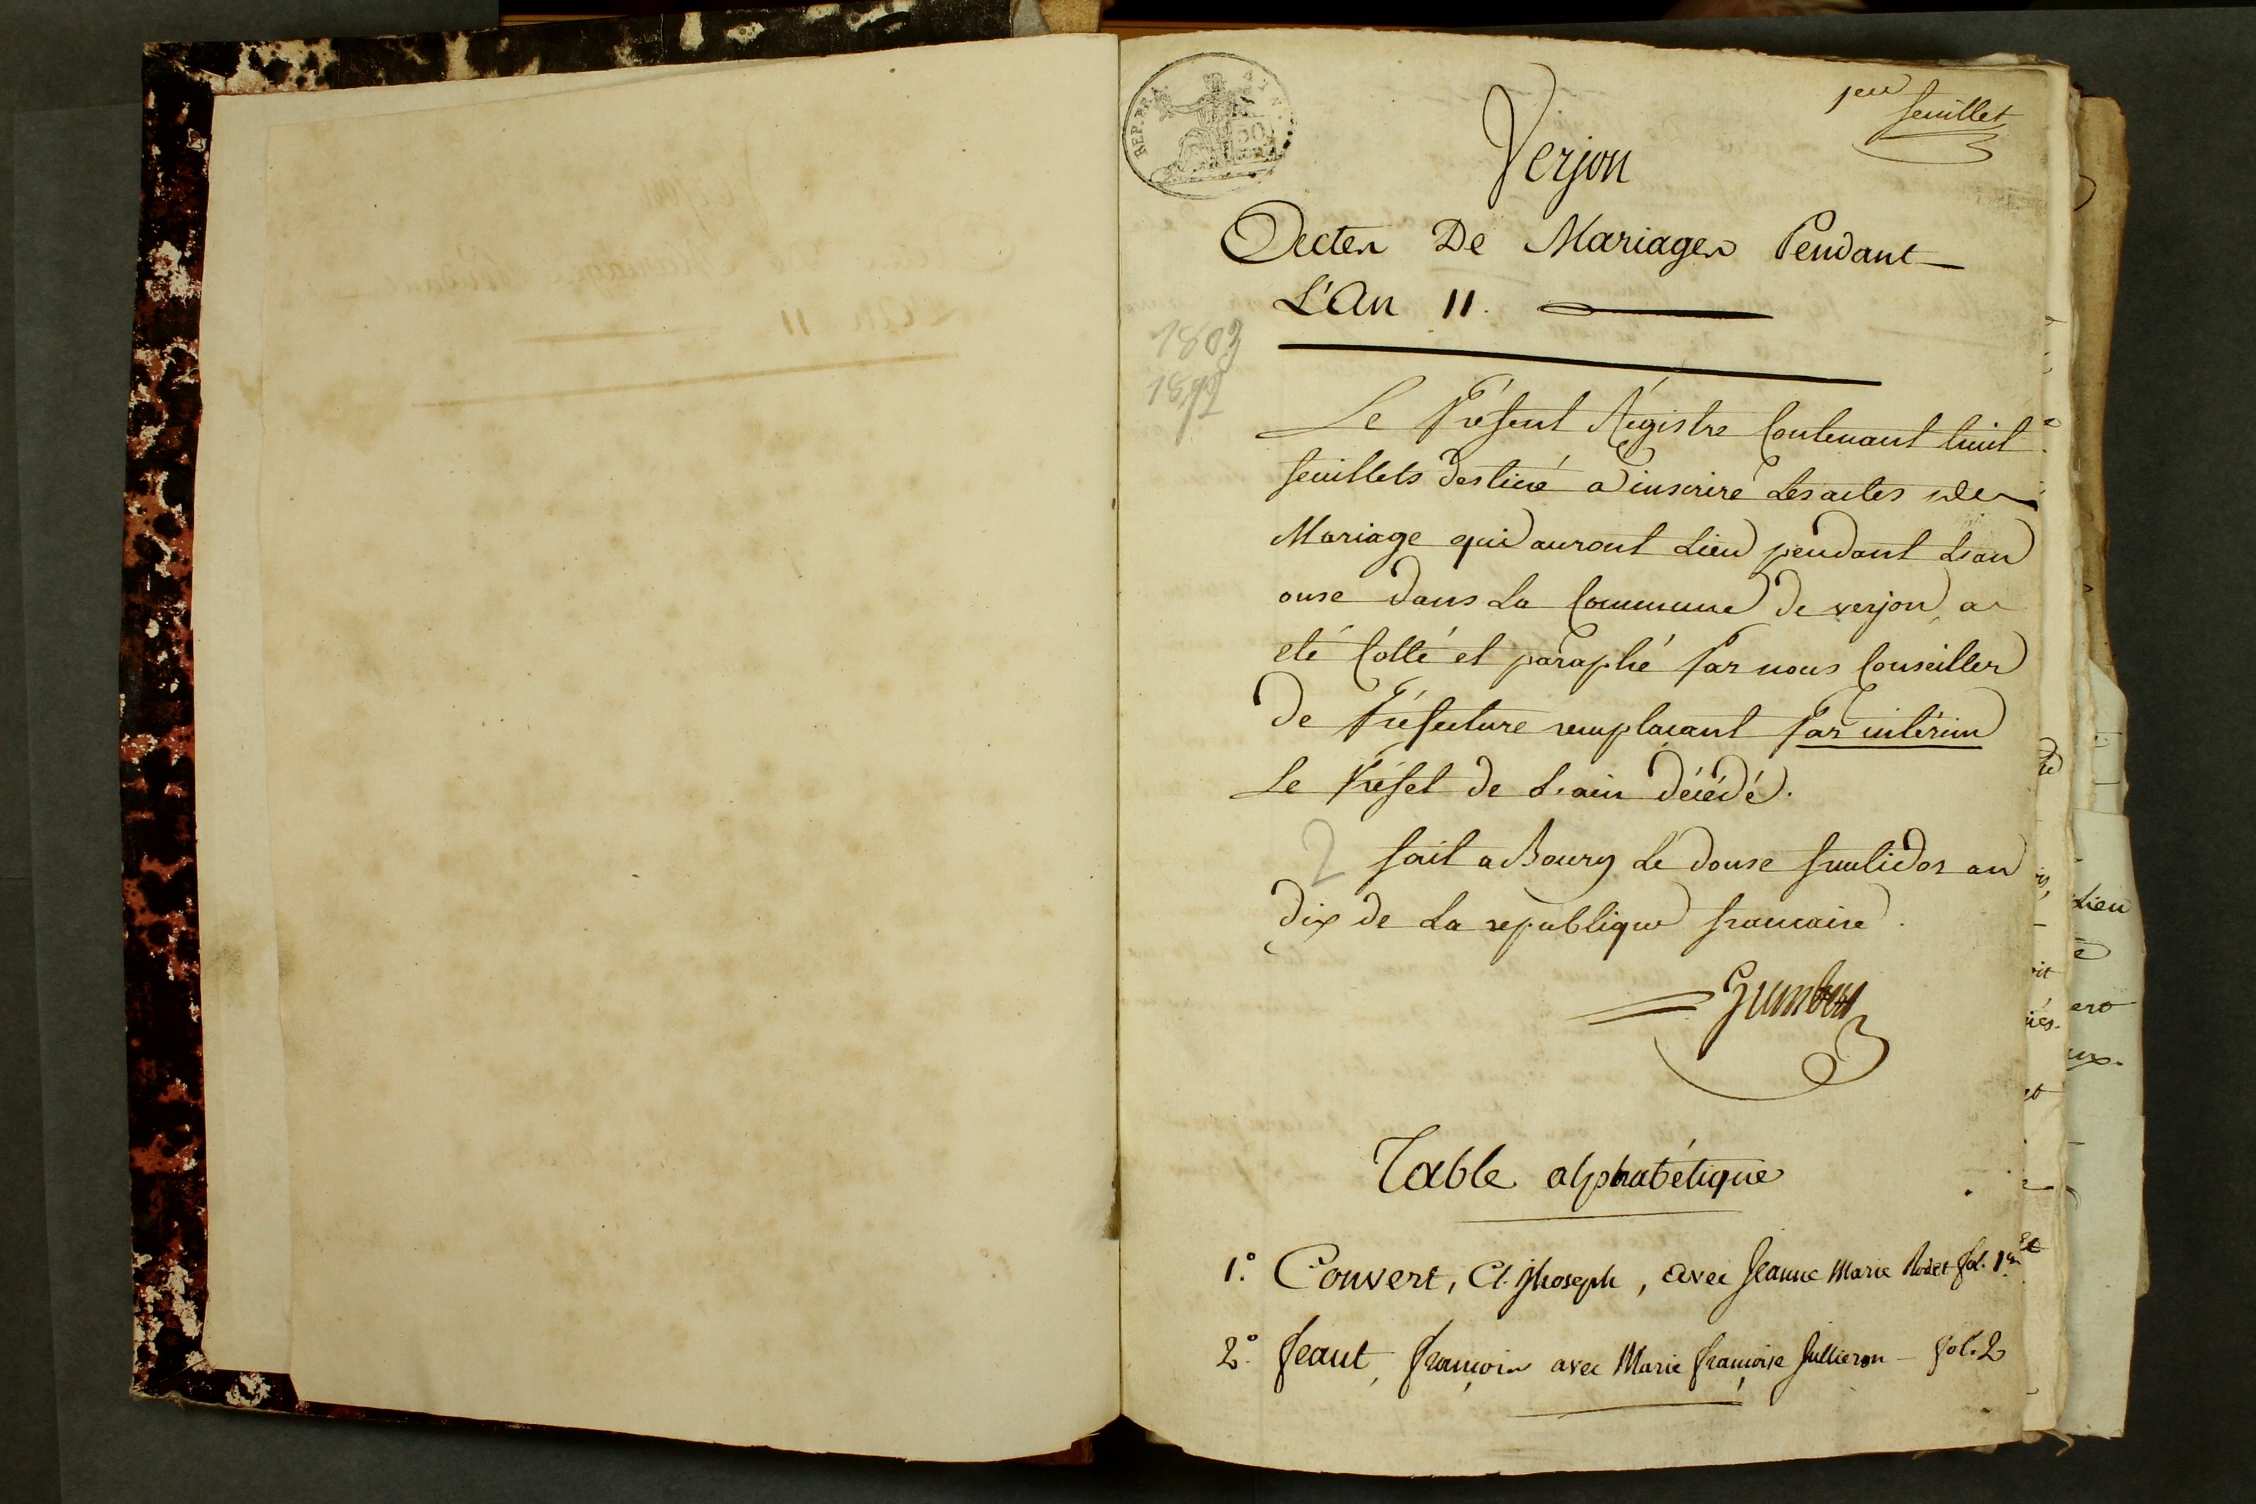 1er feuillet
REP. FRA
Verjon
Actes De Mariages Pendant
L'An 11.
1803
Le Présent Régistre Contenant huit
feuillets destiné a inscrire Les actes de
Mariage qui auront Lieu pendant L'an
onse dans La Commune de verjon a
eté Cotté et paraphé Par nous Conseiller
De Préfecture remplaçant Par intérim
Le Préfet de L'ain décédé.
2
fait a Bourg Le douse fructidor an
dix de La republique francaise.
Table alphabétique
1.° Convert, Cl. Jhoseph, avec Jeanne Marie Rodet fol. 1er
2.° Feaut, François avec Marie françoise Jullieron - fol. 2